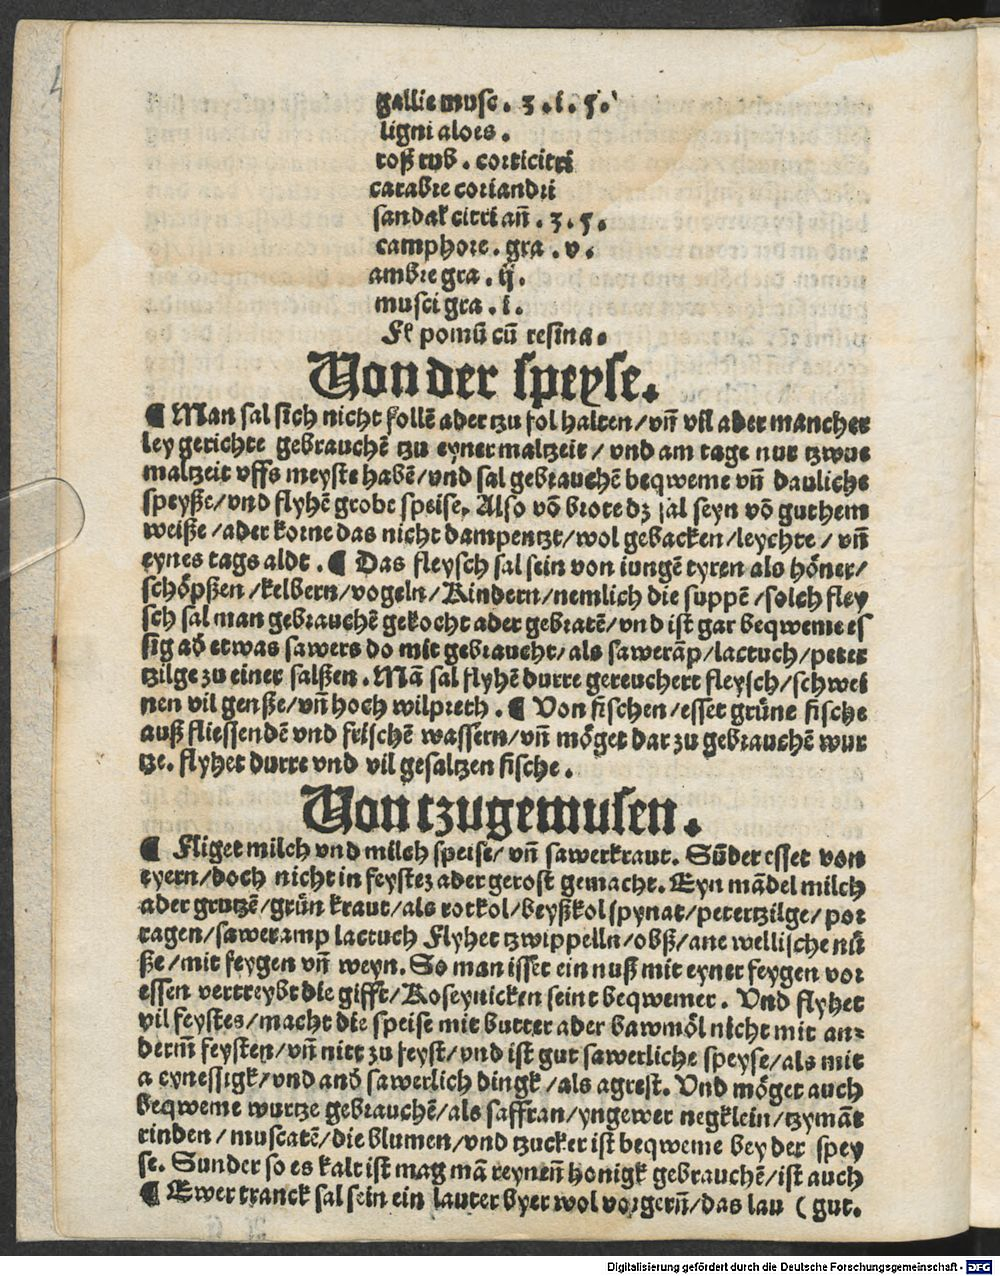 gallie musc . ʒ . i . ς .
ligni aloes .
roß rub . corticitri
carabre coriandri
sandal citri añ . ʒ . ς .
camphore . gra . v .
ambre gra . ij .
musci gra . i .
Ft pomū cū resina .
Von der speyse.
¶ Man sal sich nicht follē ader tzu fol halten / vñ vil ader mancher
ley gerichte gebrauchē tzu eyner maltzeit / vnd am tage nur tzwue
maltzeit vffs meyste habē/vnd sal gebrauchē beqweme vñ dauliche
speyße/vnd flyhē grobe speise. Also vō brote dz sal seyn vō guthem
weiße /ader korne das nicht dampentzt/wol gebacken /leychte / vñ
eynes tags aldt . ¶ Das fleysch sal sein von iungē tyren als höner/
schöpßen /kelbern/vogeln/Rindern/nemlich die suppē /solch fley
sch sal man gebrauchē gekocht ader gebratē/vnd ist gar beqweme es
sig ad etwas sawers do mit gebraucht/als sawerāp/lactuch/peter
tzilge zu einer salßen . Mā sal flyhē durre gereuchert fleysch/schwei
nen vil genße/vñ hoch wilpreth . ¶ Von fischen /esset grüne fische
auß fliessendē vnd frischē wassern/vñ möget dar zu gebrauchē wur
tze. flyhet durre vnd vil gesaltzen fische .
Von tzugemusen.
¶ Fliget milch vnd milch speise/ vñ sawerkraut. Sūder esset von
eyern/doch nicht in feystez ader gerost gemacht. Eyn mādel milch
ader grutzē/grün kraut/als rotkol/beyßkol spynat/petertzilge/pot
tagen/saweramp lactuch Flyhet tzwippelln/obß/ane wellische nü
ße /mit feygen vñ weyn. So man isset ein nuß mit eyner feygen vor
essen vertreybt die gifft/Roseynicken seint beqwemer . Vnd flyhet
vil feystes/macht die speise mit butter ader bawmöl nicht mit an-
derm̄ feysten/vñ nitt zu feyst/vnd ist gut sawerliche speyse/als mit
a eynessigk/vnd and sawerlich dingk /als agrest. Vnd möget auch
beqweme wurtze gebrauchē/als saffran/yngewer negklein/tzymāt
rinden / muscatē/die blumen/vnd tzucker ist beqweme bey der spey
se. Sunder so es kalt ist mag mā reyneñ honigk gebrauchē/ist auch
¶ Ewer tranck sal sein ein lauter byer wol vorgerñ/das lau ( gut.
Digitalisierung gefördert durch die Deutsche Forschungsgemeinschaft - DFG